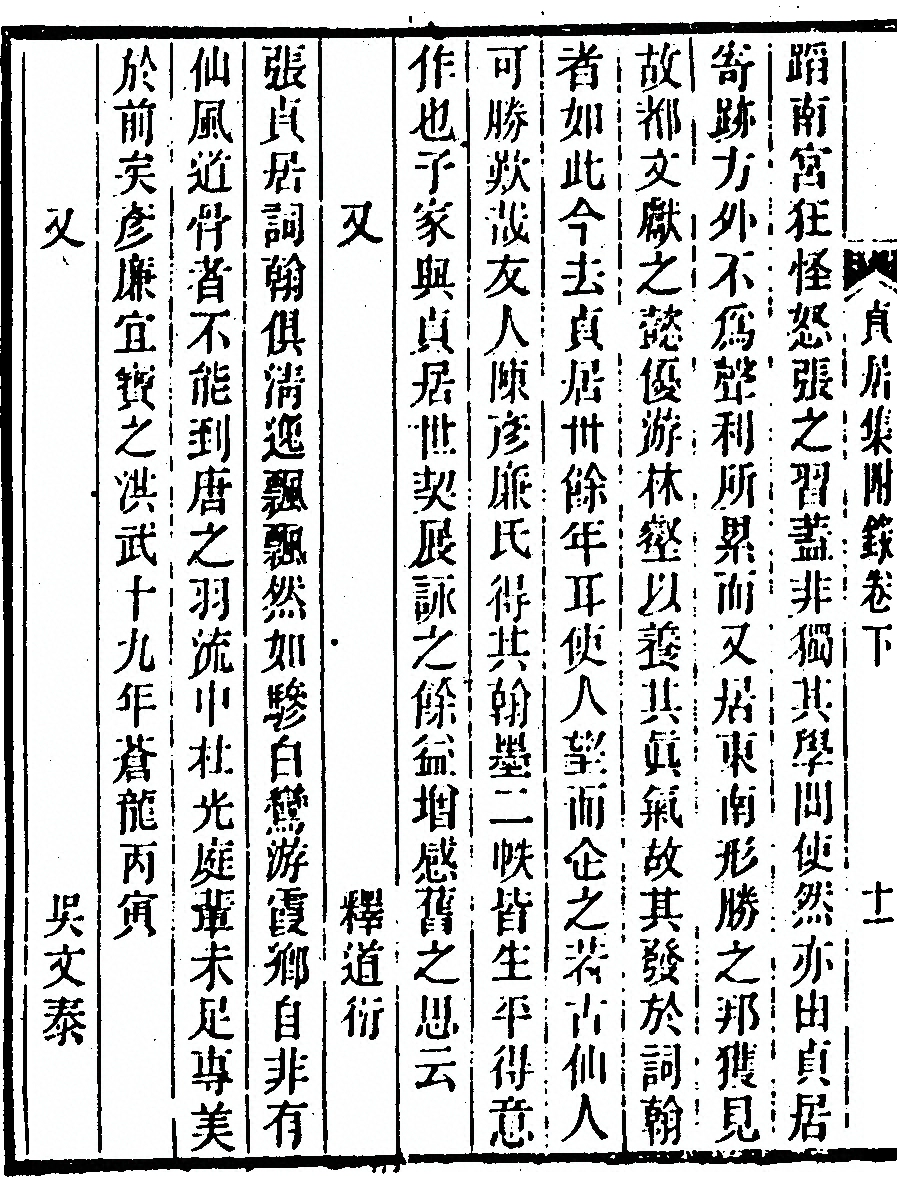 貞居集附錄卷下 十一
蹈南宮狂怪怒張之習蓋非獨其學問使然亦由貞居
寄跡方外不爲聲利所累而又居東南形勝之邦獲見
故都文獻之懿優游林壑以養其眞氣故其發於詞翰
者如此今去貞居卅餘年耳使人望而企之若古仙人
可勝歎哉友人陳彥廉氏得其翰墨二帙皆生平得意
作也予家與貞居世契展詠之餘益增感舊之思云
又 釋道衍
張貞居詞翰俱清逸飄飄然如驂白鸞游霞鄉自非有
仙風道骨者不能到唐之羽流中杜光庭輩未足專美
於前矣彥廉宜寶之洪武十九年蒼龍丙寅
又 吳文泰